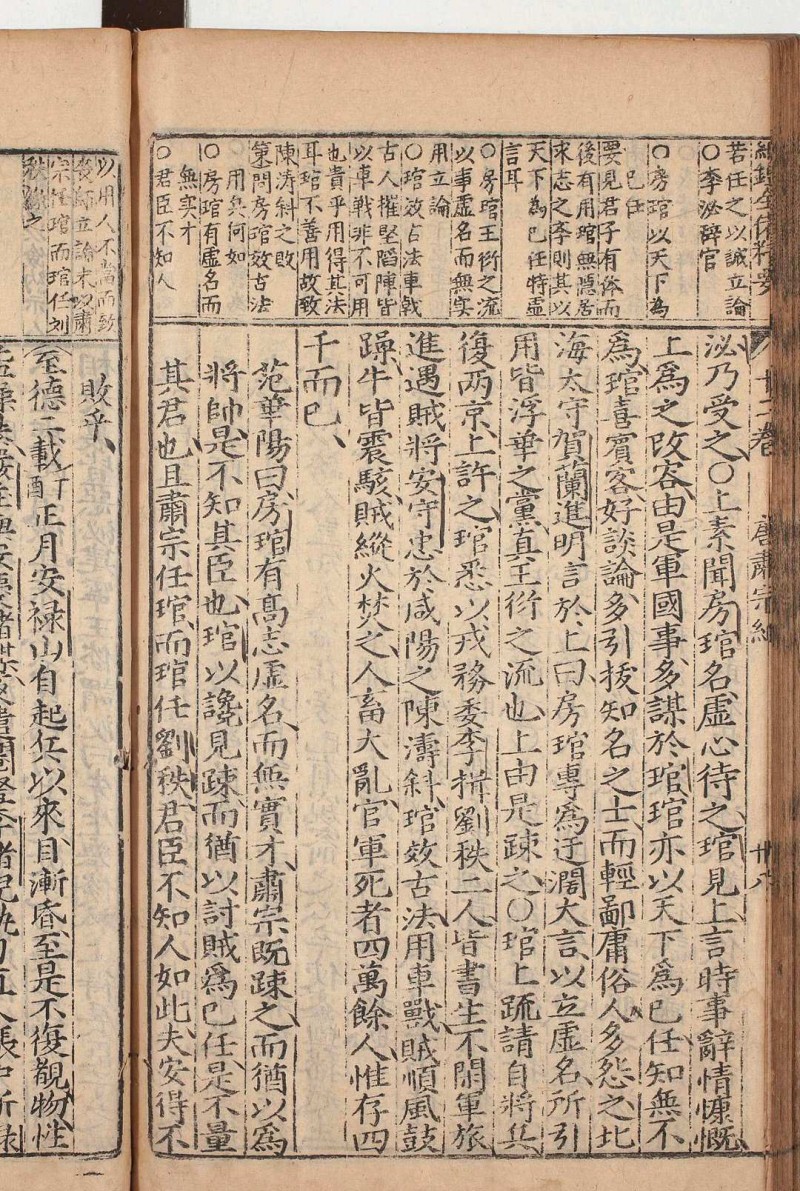 若任之以誠立論
○李泌辭官
○房琯以天下為
己任
要見君子有体而
後有用琯無隱居
求志之李則其以
天下為己任特虛
言耳
○房琯王衍之流
以事虛名而無实
用立論
○琯效古法車戰
古人摧堅陷陣皆
以車戰非不可用
也貴乎用得其法
耳琯不善用故致
陳涛斜之敗
策問房琯效古法
用兵何如
○房琯有虛名而
無实才
○君臣不知人
十二卷 唐肅宗紀 廿八
泌乃受之○上素聞房琯名虛心待之琯見上言時事辭情慷慨
上爲之改容由是軍國事多謀於琯琯亦以天下爲己任知無不
爲琯喜賓客好談論多引拔知名之士而輕鄙庸俗人多怨之北
海太守賀蘭進明言於上曰房琯專爲迂濶大言以立虛名所引
用皆浮華之黨真王衍之流也上由是疎之○琯上疏請自將兵
復两京上許之琯悉以戎務委李揖劉秩二人皆書生不閑軍旅
進遇賊將安守忠於咸陽之陳濤斜琯效古法用車戰賊順風鼓
譟牛皆震駭賊縱火焚之人畜大亂官軍死者四萬餘人惟存四
千而已
范華陽曰房琯有高志虛名而無實才肅宗既疎之而猶以爲
將帥是不知其臣也琯以讒見疎而猶以討賊爲己任是不量
其君也且肅宗任琯而琯任劉秩君臣不知人如此夫安得不
以用人不當而致
喪師立論末以肅
宗任琯而琯任刘
秩緣之
敗乎
至德二載丁酉正月安禄山自起兵以來目漸昏至是不復覩物性